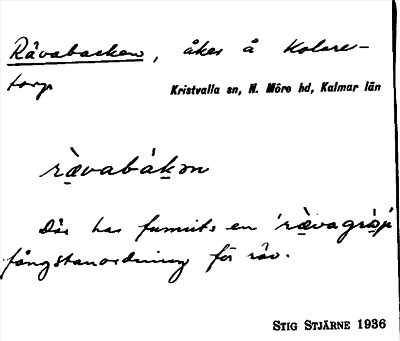 Råvabacken, åker å Kolare-
torp
Kristvalla sn, N. Möre hd, Kalmar län
ràvabákən
Där har funnits en 'ràvagròp'
fångstanordning för räv.
STIG STJÄRNE 1936